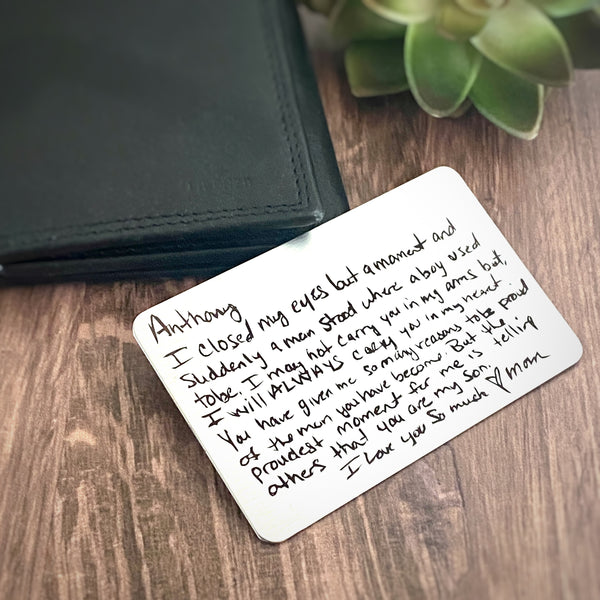 Anthony
I closed my eyes but a moment and
suddenly a man stood where a boy used
to be. I may not carry you in my arms but,
I will ALWAYS carry you in my heart.
You have given me so many reasons to be proud
of the man you have become. But the
proudest moment for me is telling
others that you are my son.
I love you so much ♡ mom